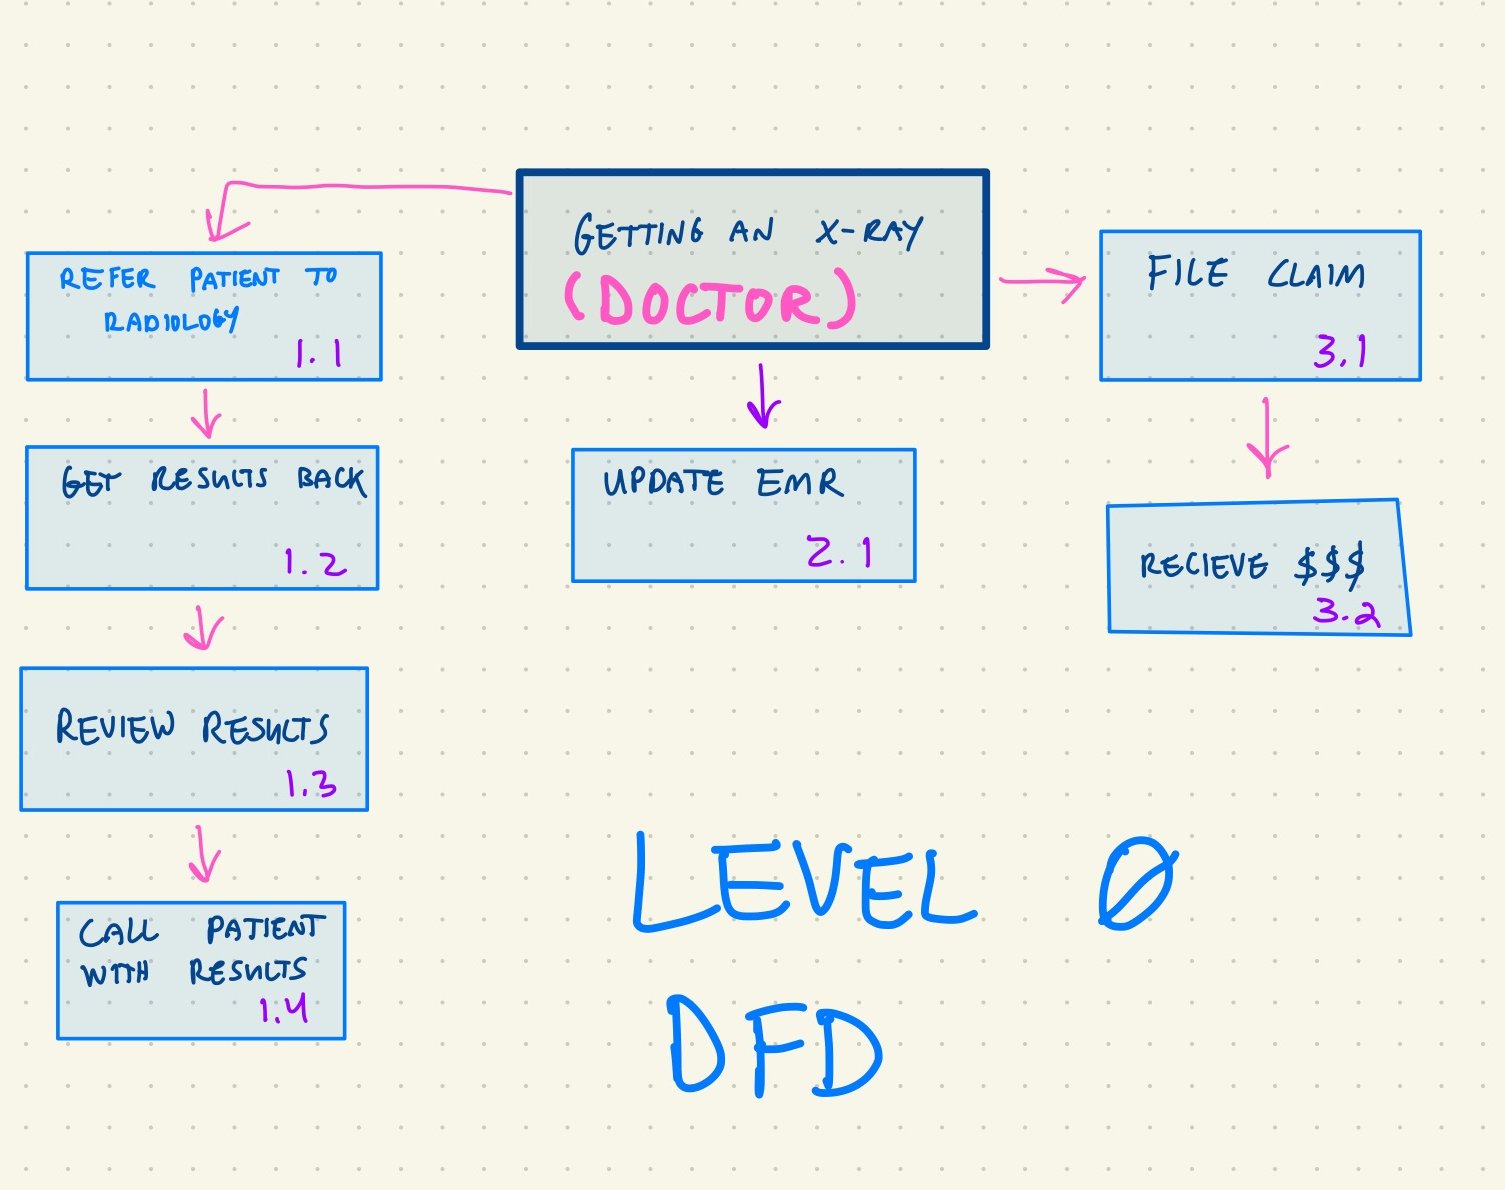 GETTING AN X-RAY
(DOCTOR)
REFER PATIENT TO
RADIOLOGY
1.1
GET RESULTS BACK
1.2
REVIEW RESULTS
1.3
CALL PATIENT
WITH RESULTS
1.4
UPDATE EMR
2.1
FILE CLAIM
3.1
RECIEVE $$$
3.2
LEVEL 0
DFD